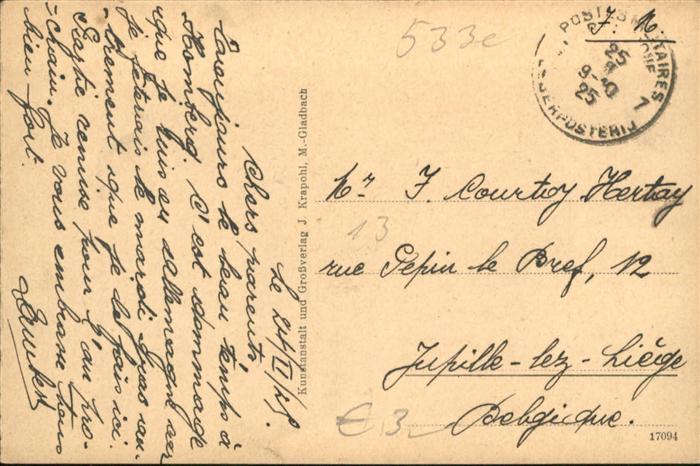 le 24/II/25
Chers parents
Toujours le beau temps à
Homberg. C'est dommage
que je suis en Allemagne car
je feterais le mardi gras au-
-trement que je le fais ici.
Partie remise pour l'an pro-
-chain. Je vous embrasse tous
bien fort.
Kunstanstalt und Großverlag J. Krapohl, M.-Gladbach
533e
F. M.
POSTES MILITAIRES
25
9-10
25
7
LEGERPOSTERIJ
Mr F. Courtoy Hertay
13
rue Pepin le Bref, 12
Jupille-lez-Liège
Belgique.
€ 3
17094